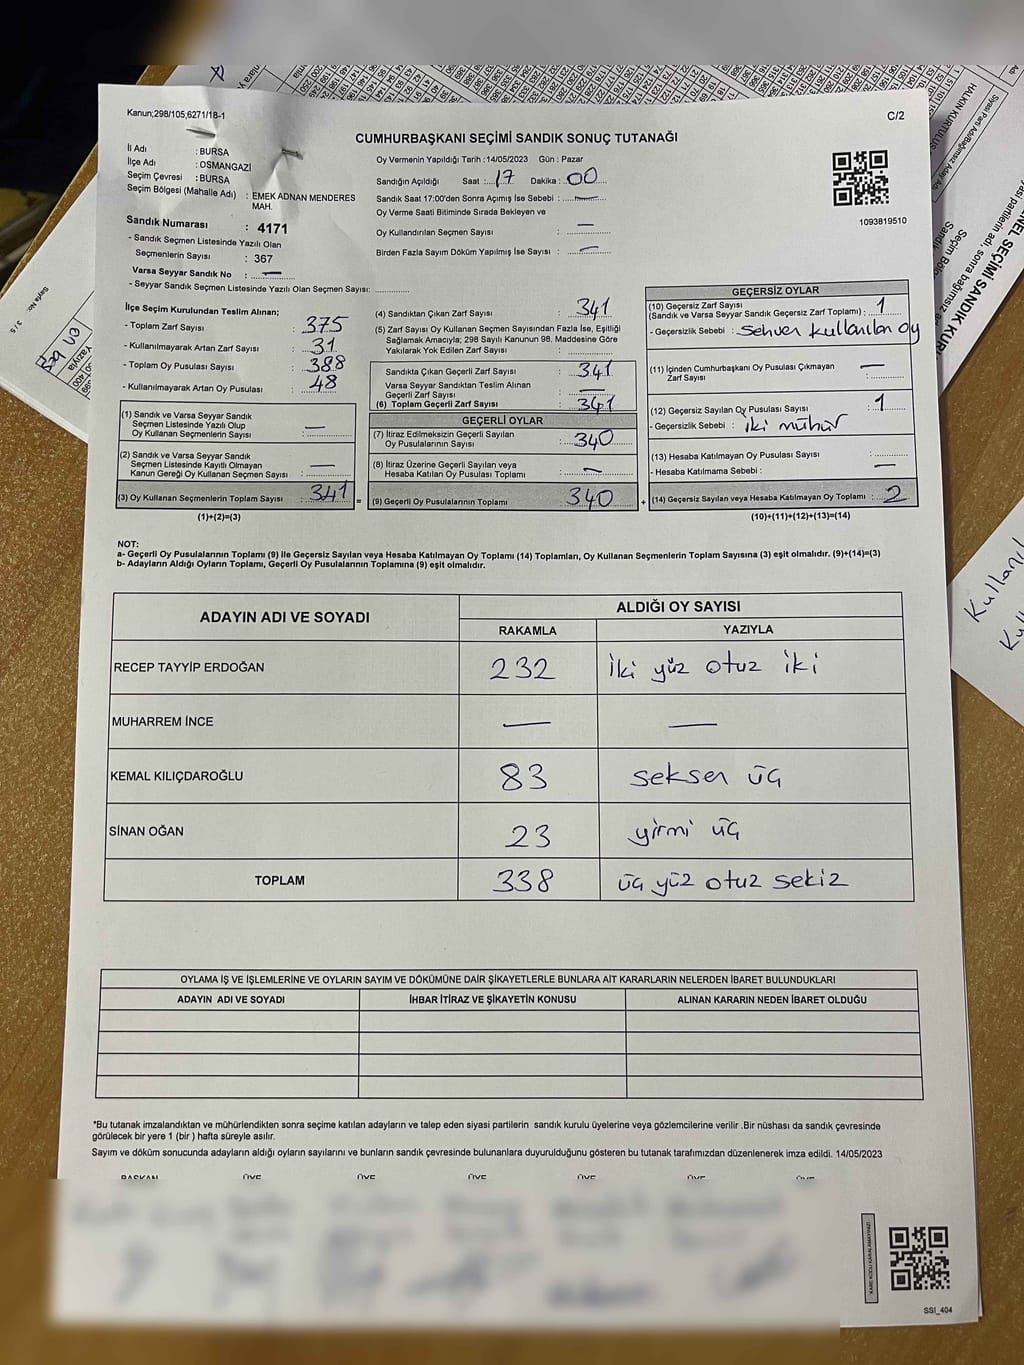 Kanun;298/105,6271/18-1
C/2
CUMHURBAŞKANI SEÇİMİ SANDIK SONUÇ TUTANAĞI
İl Adı : BURSA
İlçe Adı : OSMANGAZİ
Seçim Çevresi : BURSA
Seçim Bölgesi (Mahalle Adı) : EMEK ADNAN MENDERES
MAH.
Sandık Numarası : 4171
- Sandık Seçmen Listesinde Yazılı Olan
Seçmenlerin Sayısı : 367
Varsa Seyyar Sandık No : —
- Seyyar Sandık Seçmen Listesinde Yazılı Olan Seçmen Sayısı: ............
Oy Vermenin Yapıldığı Tarih : 14/05/2023 Gün : Pazar
Sandığın Açıldığı Saat : 17 Dakika : 00
Sandık Saat 17:00'den Sonra Açımış İse Sebebi : —
Oy Verme Saati Bitiminde Sırada Bekleyen ve
Oy Kullandırılan Seçmen Sayısı : —
Birden Fazla Sayım Döküm Yapılmış İse Sayısı : —
1093819510
İlçe Seçim Kurulundan Teslim Alınan;
- Toplam Zarf Sayısı : 375
- Kullanılmayarak Artan Zarf Sayısı : 31
- Toplam Oy Pusulası Sayısı : 388
- Kullanılmayarak Artan Oy Pusulası : 48
(1) Sandık ve Varsa Seyyar Sandık
Seçmen Listesinde Yazılı Olup
Oy Kullanan Seçmenlerin Sayısı : —
(2) Sandık ve Varsa Seyyar Sandık
Seçmen Listesinde Kayıtlı Olmayan
Kanun Gereği Oy Kullanan Seçmen Sayısı : —
(3) Oy Kullanan Seçmenlerin Toplam Sayısı : 341 =
(1)+(2)=(3)
(4) Sandıktan Çıkan Zarf Sayısı : 341
(5) Zarf Sayısı Oy Kullanan Seçmen Sayısından Fazla İse, Eşitliği
Sağlamak Amacıyla; 298 Sayılı Kanunun 98. Maddesine Göre
Yakılarak Yok Edilen Zarf Sayısı : ............
Sandıkta Çıkan Geçerli Zarf Sayısı : 341
Varsa Seyyar Sandıktan Teslim Alınan
Geçerli Zarf Sayısı : —
(6) Toplam Geçerli Zarf Sayısı : 341
GEÇERLİ OYLAR
(7) İtiraz Edilmeksizin Geçerli Sayılan
Oy Pusulalarının Sayısı : 340
(8) İtiraz Üzerine Geçerli Sayılan veya
Hesaba Katılan Oy Pusulası Toplamı : —
(9) Geçerli Oy Pusulalarının Toplamı 340 +
GEÇERSİZ OYLAR
(10) Geçersiz Zarf Sayısı
(Sandık ve Varsa Seyyar Sandık Geçersiz Zarf Toplamı) : 1
- Geçersizlik Sebebi : Sehven kullanılan oy
(11) İçinden Cumhurbaşkanı Oy Pusulası Çıkmayan
Zarf Sayısı : —
(12) Geçersiz Sayılan Oy Pusulası Sayısı : 1
- Geçersizlik Sebebi : iki mühür
(13) Hesaba Katılmayan Oy Pusulası Sayısı : ............
- Hesaba Katılmama Sebebi : —
(14) Geçersiz Sayılan veya Hesaba Katılmayan Oy Toplamı : 2
(10)+(11)+(12)+(13)=(14)
NOT:
a- Geçerli Oy Pusulalarının Toplamı (9) ile Geçersiz Sayılan veya Hesaba Katılmayan Oy Toplamı (14) Toplamları, Oy Kullanan Seçmenlerin Toplam Sayısına (3) eşit olmalıdır. (9)+(14)=(3)
b- Adayların Aldığı Oyların Toplamı, Geçerli Oy Pusulalarının Toplamına (9) eşit olmalıdır.
ADAYIN ADI VE SOYADI
ALDIĞI OY SAYISI
RAKAMLA YAZIYLA
RECEP TAYYİP ERDOĞAN 232 iki yüz otuz iki
MUHARREM İNCE — —
KEMAL KILIÇDAROĞLU 83 seksen üç
SİNAN OĞAN 23 yirmi üç
TOPLAM 338 üç yüz otuz sekiz
OYLAMA İŞ VE İŞLEMLERİNE VE OYLARIN SAYIM VE DÖKÜMÜNE DAİR ŞİKAYETLERLE BUNLARA AİT KARARLARIN NELERDEN İBARET BULUNDUKLARI
ADAYIN ADI VE SOYADI İHBAR İTİRAZ VE ŞİKAYETİN KONUSU ALINAN KARARIN NEDEN İBARET OLDUĞU
*Bu tutanak imzalandıktan ve mühürlendikten sonra seçime katılan adayların ve talep eden siyasi partilerin sandık kurulu üyelerine veya gözlemcilerine verilir .Bir nüshası da sandık çevresinde
görülecek bir yere 1 (bir ) hafta süreyle asılır.
Sayım ve döküm sonucunda adayların aldığı oyların sayılarını ve bunların sandık çevresinde bulunanlara duyurulduğunu gösteren bu tutanak tarafımızdan düzenlenerek imza edildi. 14/05/2023
BAŞKAN ÜYE ÜYE ÜYE ÜYE ÜYE ÜYE
KARE KODU KARALAMAYINIZ!
SSI_404